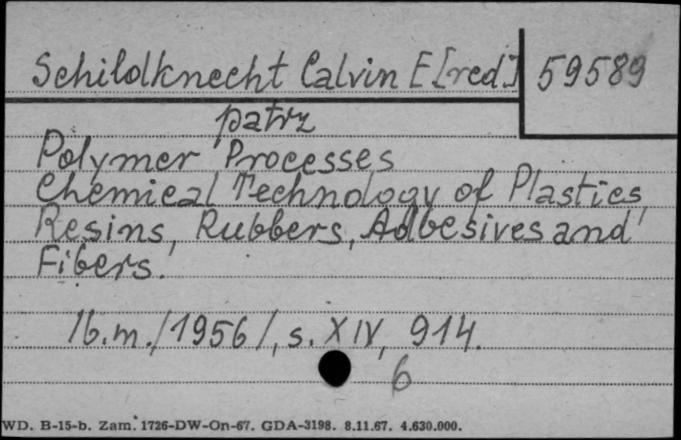 Schildknecht Calvin E[red.] 59589
patrz
Polymer Processes
Chemical Technology of Plastics,
Resins, Rubbers, Adbesives and
Fibers.
/b.m./1956/, s. XIV, 914.
6
WD. B-15-b. Zam. 1726-DW-On-67. GDA-3198. 8.11.67. 4.630.000.